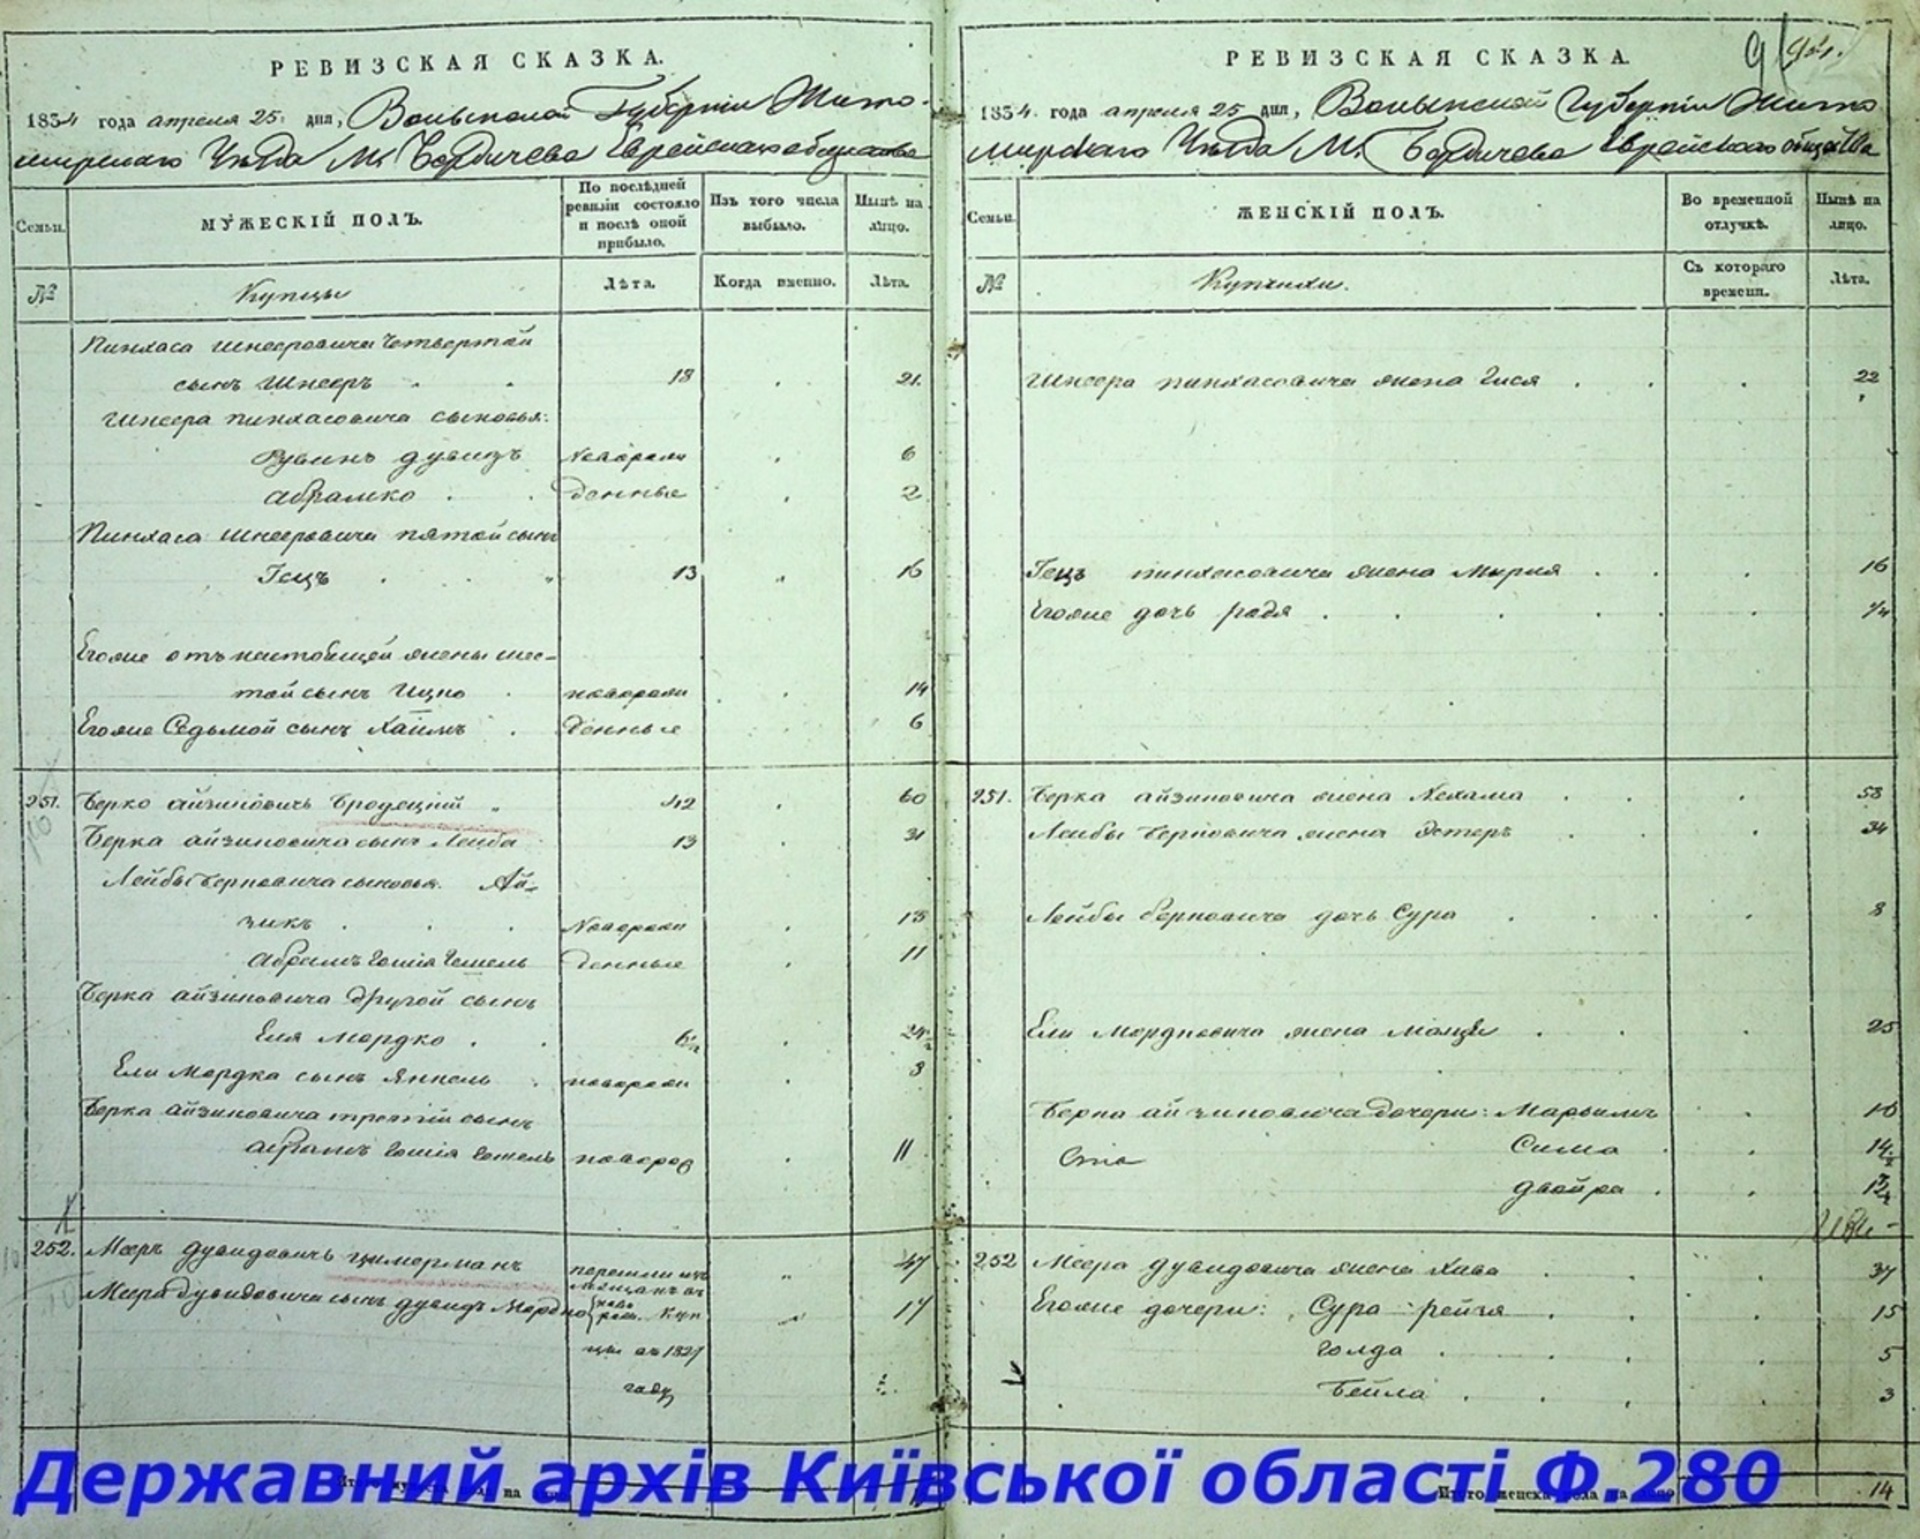 РЕВИЗСКАЯ СКАЗКА.
1834 года апреля 25 дня, Волынской Губернии Жито-
мирскаго Уезда М. Бердичева Еврейскаго общества
Семьи.
МУЖЕСКІЙ ПОЛЪ.
По послѣдней ревизіи состояло и послѣ оной прибыло.
Изъ того числа выбыло.
Нынѣ на лицо.
№
Купцы
Лѣта.
Когда именно.
Лѣта.
Пинхаса Шнееровича четвертой
сынъ Шнееръ 18 21.
Шнеера Пинхасовича сыновья:
Рувинъ Дувидъ новорож 6
Абрамко денные 2
Пинхаса Шнееровича пятой сынъ
Гецъ 13 16
Егоже отъ настоящей жены шес-
той сынъ Ицко новорож 14
Егоже Седьмой сынъ Хаимъ денные 6
251. Берко Айзиковичъ Бродецкій 42 60
Берка Айзиковича сынъ Лейба 13 31
Лейбы Берковича сыновья. Ай-
зикъ новорож 13
Абрамъ Гошія Гешель денные 11
Берка Айзиковича другой сынъ
Еля Мордко 6½ 24½
Ели Мордка сынъ Янкель новорож 3
Берка Айзиковича третій сынъ
Абрамъ Гошія Гешель новорож 11
252. Мееръ Дувидовичъ Цимерманъ перешли изъ 47
мещанъ въ
Меера Дувидовича сынъ Дувидъ Мордко ново рож. куп 17
цы въ 1827
году
РЕВИЗСКАЯ СКАЗКА.
1834 года апреля 25 дня, Волынской Губерніи Жито
мирскаго Уезда М. Бердичева Еврейскаго общества
Семьи.
ЖЕНСКІЙ ПОЛЪ.
Во временной отлучкѣ.
Нынѣ на лицо.
№
Купчихи.
Съ котораго времени.
Лѣта.
Шнеера Пинхасовича жена Гися 22
Гецъ Пинхасовича жена Мирля 16
Егоже дочь Радя ¼
251. Берка Айзиковича жена Нехама 58
Лейбы Берковича жена Эстеръ 34
Лейбы Берковича дочь Сура 8
Ели Мордковича жена Маици 25
Берка Айзиковича дочери: Марьимъ 16
Сима 14
Двойра 12
252 Меера Дувидовича жена Хава 37
Егоже дочери: Сура Рейзя 15
Голда 5
Бейла 3
Державний архів Київської області Ф.280
Итого женска пола на лицо 14